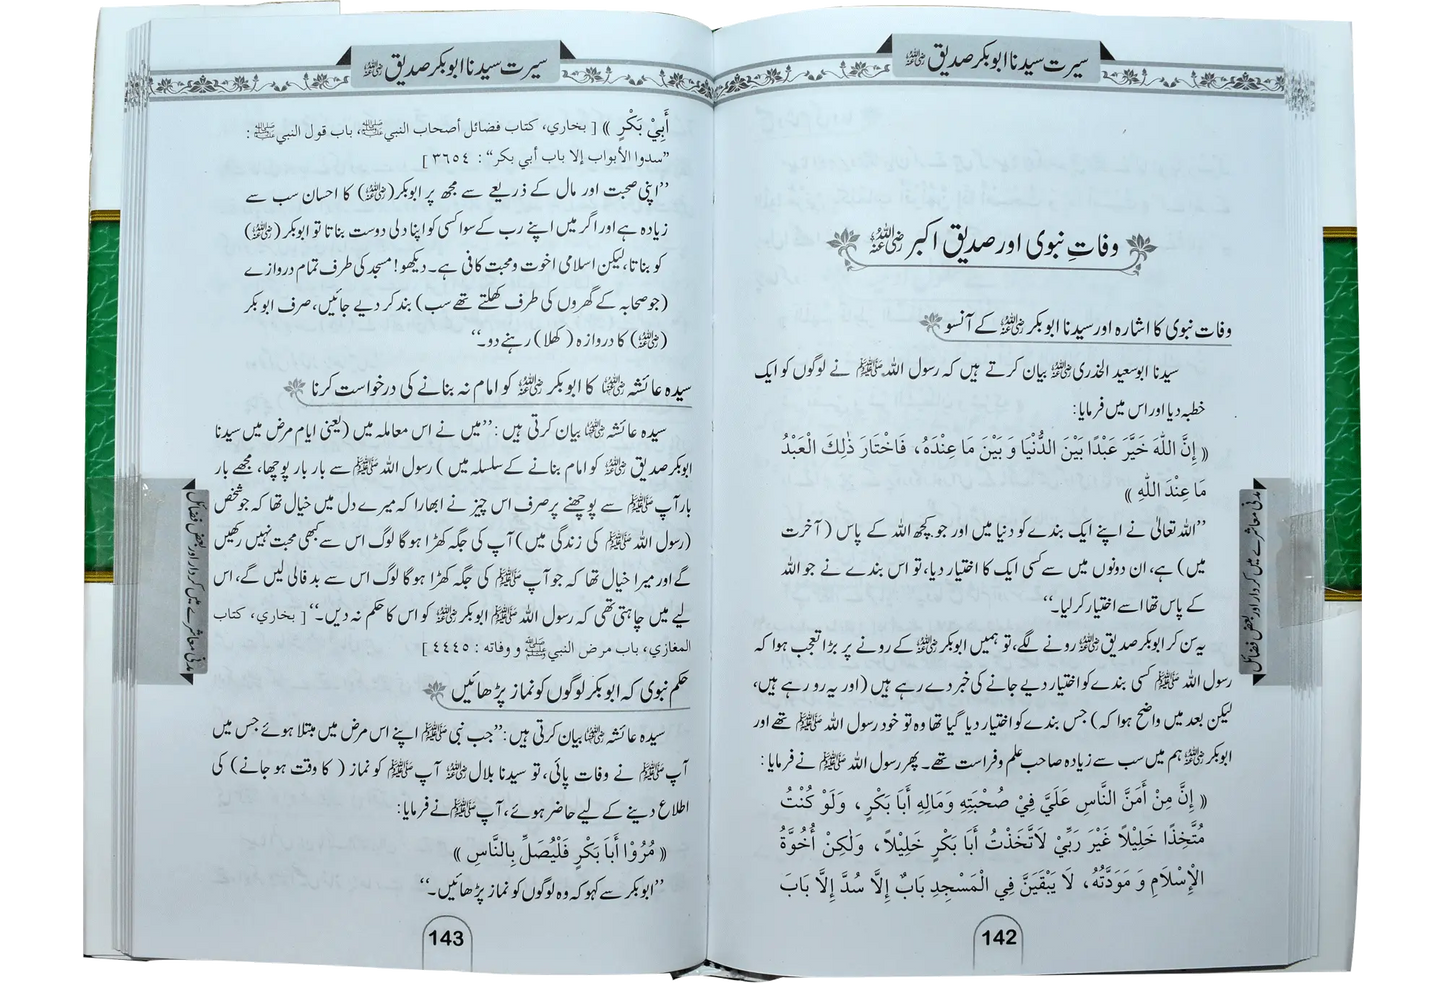 سیرت سیدنا ابوبکر صدیق ﷜
وفاتِ نبوی اور صدیق اکبر ﷜
وفات نبوی کا اشارہ اور سیدنا ابوبکر ﷜ کے آنسو
سیدنا ابوسعید الخدری ﷜ بیان کرتے ہیں کہ رسول اللہ ﷺ نے لوگوں کو ایک
خطبہ دیا اور اس میں فرمایا:
« إِنَّ اللّٰهَ خَيَّرَ عَبْدًا بَيْنَ الدُّنْيَا وَ بَيْنَ مَا عِنْدَهُ، فَاخْتَارَ ذٰلِكَ الْعَبْدُ
مَا عِنْدَ اللّٰهِ »
’’اللہ تعالیٰ نے اپنے ایک بندے کو دنیا میں اور جو کچھ اللہ کے پاس (آخرت
میں) ہے، ان دونوں میں سے کسی ایک کا اختیار دیا، تو اس بندے نے جو اللہ
کے پاس تھا اسے اختیار کر لیا۔‘‘
یہ سن کر ابوبکر صدیق ﷜ رونے لگے، تو ہمیں ابوبکر ﷜ کے رونے پر بڑا تعجب ہوا کہ
رسول اللہ ﷺ کسی بندے کو اختیار دیے جانے کی خبر دے رہے ہیں (اور یہ رو رہے ہیں،
لیکن بعد میں واضح ہوا کہ) جس بندے کو اختیار دیا گیا تھا وہ تو خود رسول اللہ ﷺ تھے اور
ابوبکر ﷜ ہم میں سب سے زیادہ صاحب علم و فراست تھے۔ پھر رسول اللہ ﷺ نے فرمایا:
« إِنَّ مِنْ أَمَنِّ النَّاسِ عَلَيَّ فِيْ صُحْبَتِهِ وَمَالِهِ أَبَا بَكْرٍ، وَلَوْ كُنْتُ
مُتَّخِذًا خَلِيْلًا غَيْرَ رَبِّيْ لَاتَّخَذْتُ أَبَا بَكْرٍ خَلِيْلًا، وَلٰكِنْ أُخُوَّةُ
الْإِسْلَامِ وَ مَوَدَّتُهُ، لَا يَبْقَيَنَّ فِي الْمَسْجِدِ بَابٌ إِلَّا سُدَّ إِلَّا بَابَ
142
مدنی معاشرے میں کردار اور بعض فضائل
سیرت سیدنا ابوبکر صدیق ﷜
أَبِيْ بَكْرٍ » [ بخاري، كتاب فضائل أصحاب النبي ﷺ، باب قول النبي ﷺ :
”سدوا الأبواب إلا باب أبي بكر“ : ٣٦٥٤ ]
’’اپنی صحبت اور مال کے ذریعے سے مجھ پر ابوبکر (﷜) کا احسان سب سے
زیادہ ہے اور اگر میں اپنے رب کے سوا کسی کو اپنا دلی دوست بناتا تو ابوبکر (﷜)
کو بناتا، لیکن اسلامی اخوت و محبت کافی ہے۔ دیکھو! مسجد کی طرف تمام دروازے
(جو صحابہ کے گھروں کی طرف کھلتے تھے سب) بند کر دیے جائیں، صرف ابوبکر
(﷜) کا دروازہ (کھلا) رہنے دو۔‘‘
سیدہ عائشہ ؓ کا ابوبکر ﷜ کو امام نہ بنانے کی درخواست کرنا
سیدہ عائشہ ؓ بیان کرتی ہیں: ’’میں نے اس معاملہ میں (یعنی ایام مرض میں سیدنا
ابوبکر صدیق ﷜ کو امام بنانے کے سلسلہ میں) رسول اللہ ﷺ سے بار بار پوچھا، مجھے بار
بار آپ ﷺ سے پوچھنے پر صرف اس چیز نے ابھارا کہ میرے دل میں خیال تھا کہ جو شخص
(رسول اللہ ﷺ کی زندگی میں) آپ کی جگہ کھڑا ہوگا لوگ اس سے کبھی محبت نہیں رکھیں
گے اور میرا خیال تھا کہ جو آپ ﷺ کی جگہ کھڑا ہوگا لوگ اس سے بدفالی لیں گے، اس
لیے میں چاہتی تھی کہ رسول اللہ ﷺ ابوبکر ﷜ کو اس کا حکم نہ دیں۔‘‘ [ بخاري، كتاب
المغازي، باب مرض النبي ﷺ و وفاته : ٤٤٤٥ ]
حکم نبوی کہ ابوبکر لوگوں کو نماز پڑھائیں
سیدہ عائشہ ؓ بیان کرتی ہیں: ’’جب نبی ﷺ اپنے اس مرض میں مبتلا ہوئے جس میں
آپ ﷺ نے وفات پائی، تو سیدنا بلال ﷜ آپ ﷺ کو نماز (کا وقت ہو جانے) کی
اطلاع دینے کے لیے حاضر ہوئے، آپ ﷺ نے فرمایا:
« مُرُوْا أَبَا بَكْرٍ فَلْيُصَلِّ بِالنَّاسِ »
’’ابوبکر سے کہو کہ وہ لوگوں کو نماز پڑھائیں۔‘‘
143
مدنی معاشرے میں کردار اور بعض فضائل